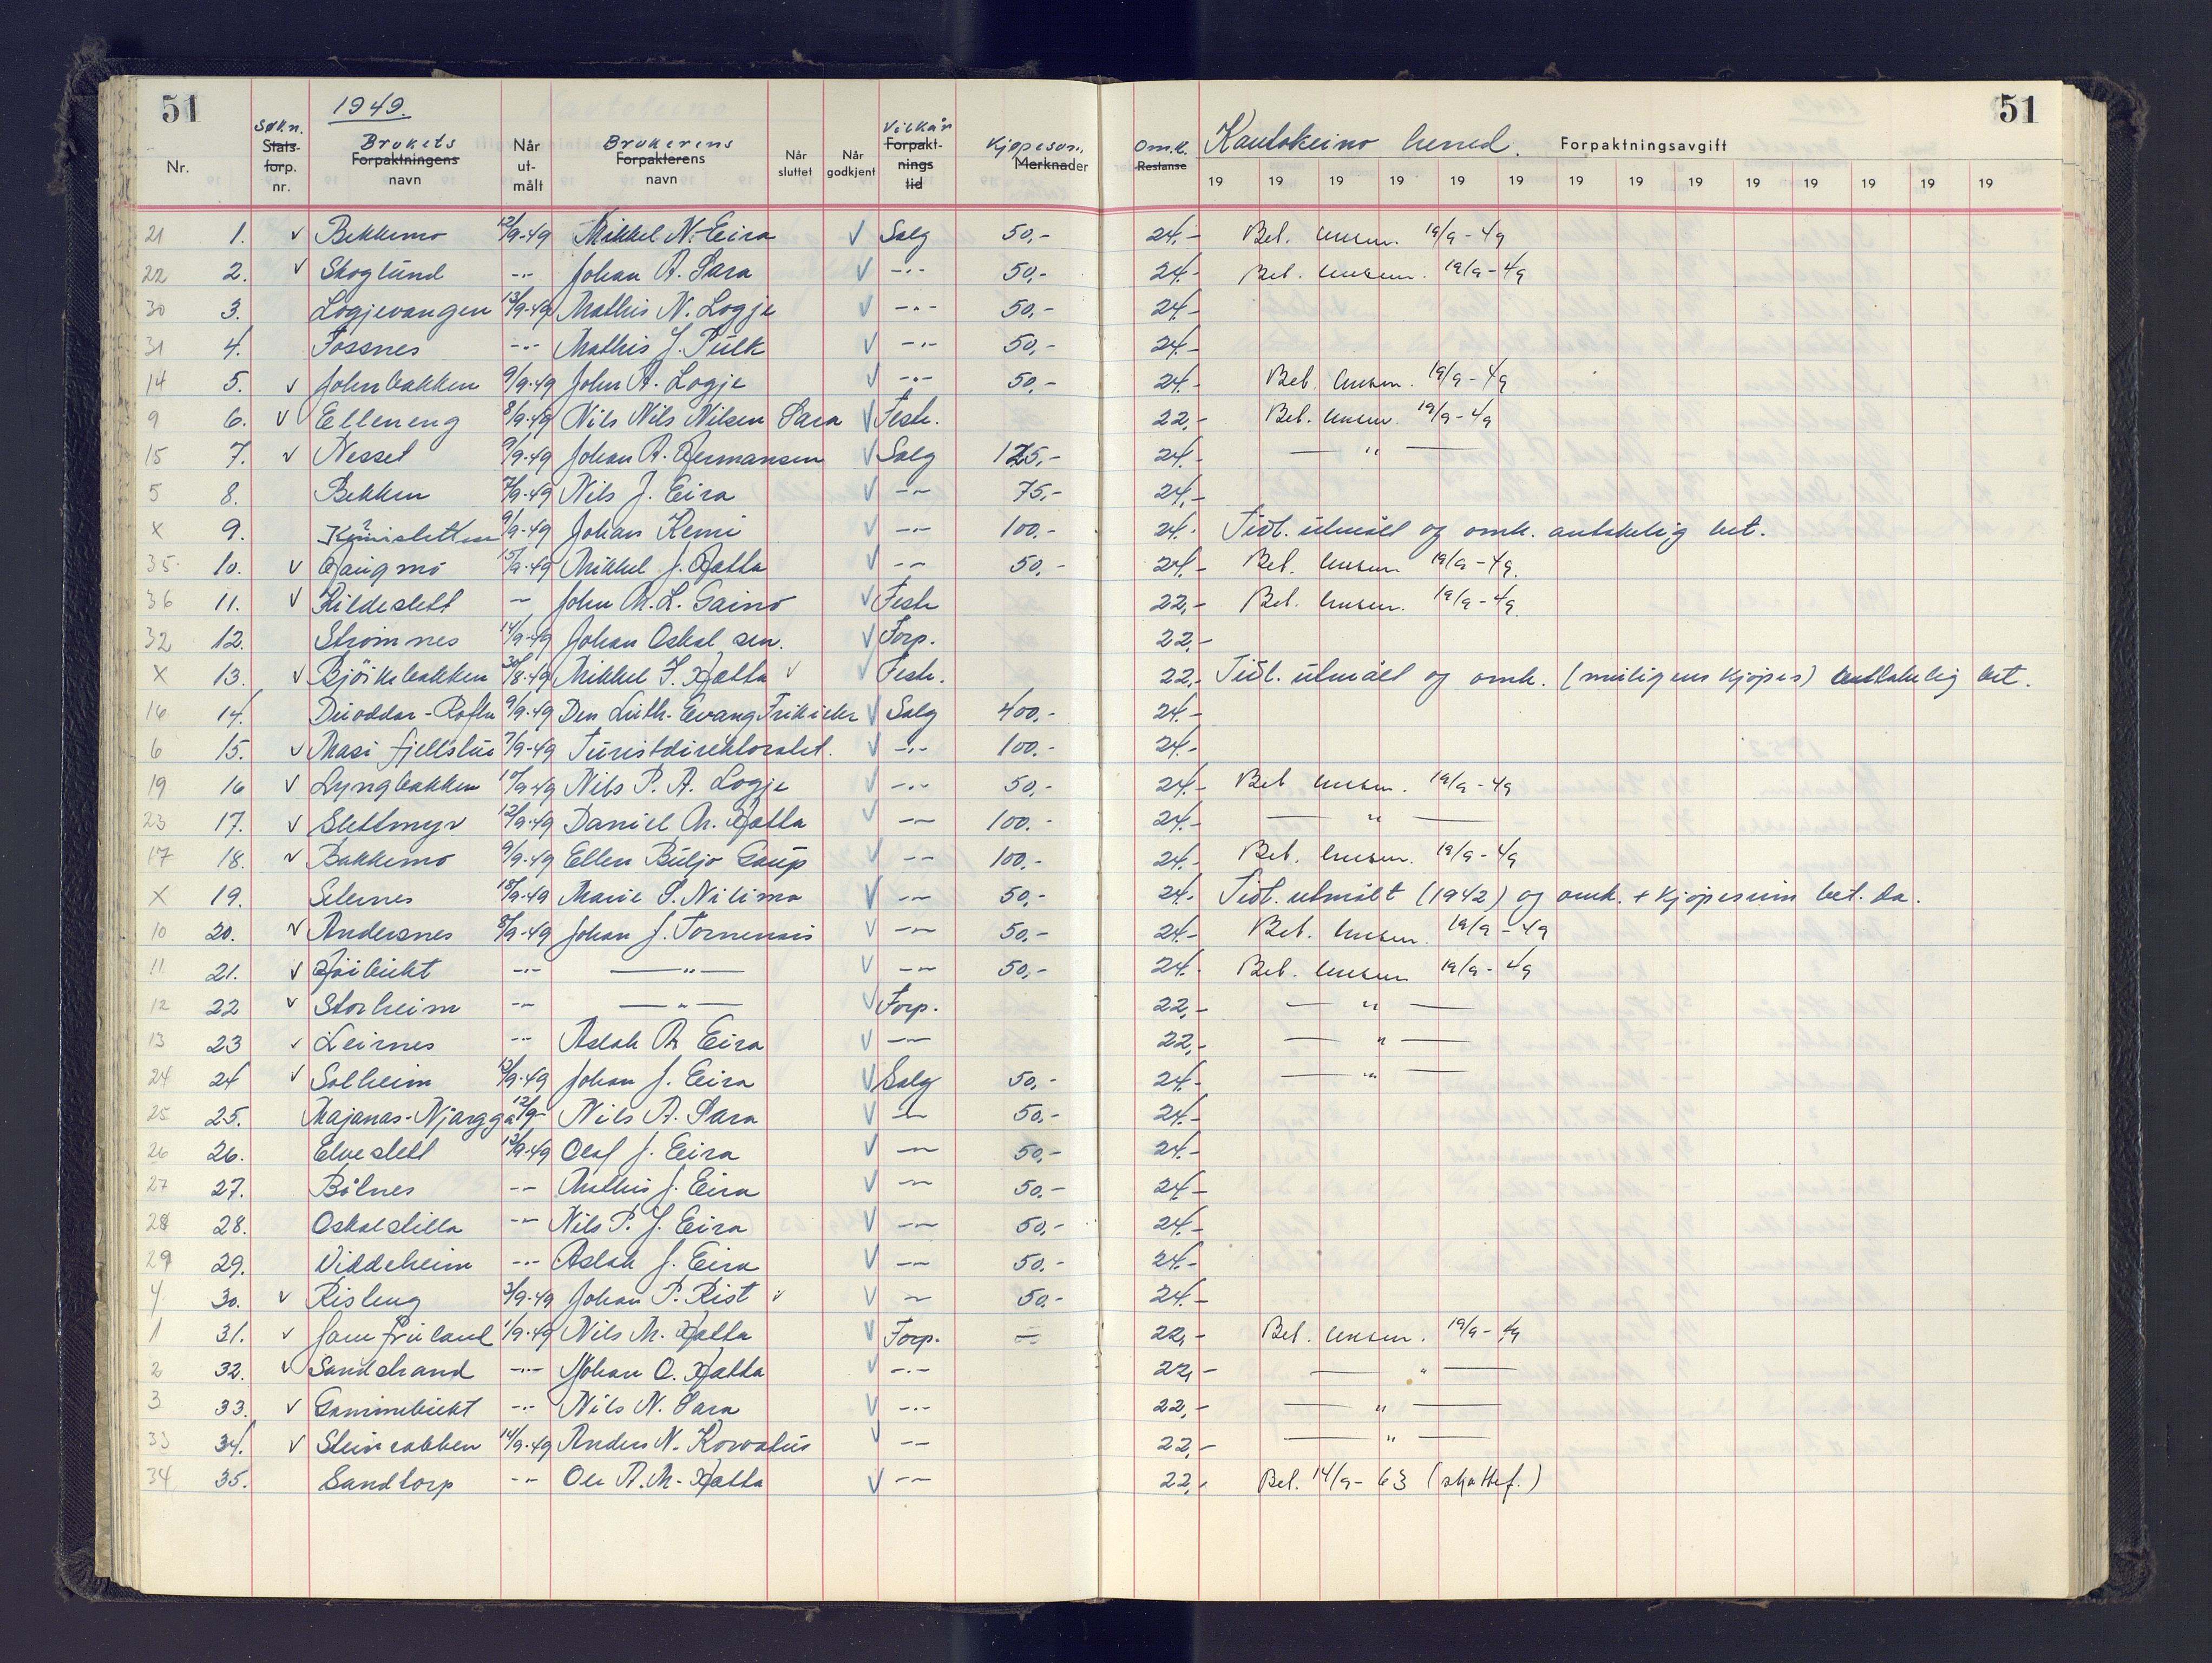 51 1949. Kautokeino herred. Forpaktningsavgift 51
Nr. Søkn. Stats-forp. nr. Brukets Forpaktningens navn Når ut-målt Brukerens Forpakterens navn Når sluttet Når godkjent Vilkår Forpakt-nings tid Kjøpesum. Merknader Omk. Restanse 19 19 19 19 19 19 19 19 19 19 19 19 19 19
21 1. v Bekkemo 12/9-49 Mikkel N. Eira v Salg 50,- 24,- Bet. lensm. 19/9-49
22 2. v Skoglund -"- Johan A. Sara v -"- 50,- 24,- Bet. lensm. 19/9-49
30 3. Logjevangen 13/9-49 Mathis N. Logje v -"- 50,- 24,-
31 4. Fossnes -"- Mathis J. Pulk v -"- 50,- 24,-
14 5. v Johnbakken 9/9-49 John A. Logje v -"- 50,- 24,- Bet. lensm. 19/9-49
9 6. v Elleneng 8/9-49 Nils Nils Nilsen Sara v Feste. 22,- Bet. lensm. 19/9-49
15 7. v Nesset 9/9-49 Johan A. Hermansen v Salg 125,- 24,- — " —
5 8. Bekken 7/9-49 Nils J. Eira v -"- 75,- 24,-
x 9. 9/9-49 Johan Kemi v -"- 100.- 24.- Tidl. utmålt og omk. antakelig bet.
35 10. v Haugmo 15/9-49 Mikkel J. Hætta v -"- 50,- 24,- Bet. lensm 19/9-49.
36 11. v Kildeslett -"- John M. L. Gaino v Feste 22,- Bet. lensm. 19/9-49
32 12. Strømnes 14/9-49 Johan Oskal sen. v Forp. 22,-
x 13. v Bjørkebakken 30/8-49 Mikkel J. Hætta v v Feste. 22,- Tidl. utmålt og omk. (muligens kjøpes) antakelig bet.
16 14. Duoddar-Rofte 9/9-49 Den Luth. Evang Frikirke v Salg 400,- 24,-
6 15. v Masi fjellstue 7/9-49 Turistdirektoratet. v -"- 100.- 24.-
19 16 v Lyngbakken 10/9-49 Nils P. A. Logje v -"- 50,- 24,- Bet lensm. 19/9-49
23 17. v Slettmyr 12/9-49 Daniel M. Hætta v -"- 100.- 24.- — " —
17 18. v Bakkemo 9/9-49 Ellen Buljo Gaup v -"- 100.- 24,- Bet. lensm. 19/9-49
x 19. Selernes 10/9-49 Marie S. Nilima v -"- 50,- 24,- Tidl. utmålt (1942) og omk. + kjøpesum bet. da.
10 20. v Andersnes 8/9-49 Johan J. Tornensis v -"- 50,- 24,- Bet. lensm. 19/9-49
11 21. v Høibukt -"- — " — v -"- 50,- 24,- Bet. lensm 19/9-49
12 22 v Storheim -"- — " — v Forp. 22,- — " —
13 23 v Leirnes -"- Aslak A. Eira v -"- 22,- — " —
24 24 v Solheim 12/9-49 Johan J. Eira v Salg 50,- 24,- — " —
25 25. Majanas-Njargga 12/9- Nils A. Sara v -"- 50,- 24,-
26 26. Elveslett 12/9-49 Olaf J. Eira v -"- 50,- 24,-
27 27. Bålnes -"- Mathis J. Eira v -"- 50.- 24,-
28 28. Oskalstilla -"- Nils P. J. Eira v -"- 50,- 24,-
29 29. Viddeheim -"- Aslak J. Eira v -"- 50.- 24,-
4 30. v Risleng 3/9-49 Johan P. Rist v v -"- 50.- 24,-
1 31. v 1/9-49 Nils M. Hætta v Forp. — 22,- Bet. lensm. 19/9-49
2 32. v Sandstrand -"- Johan O. Hætta v -"- 22,- — " —
3 33. v Gammebukt -"- Nils N. Sara v -"- 22,- — " —
33 34. v Steinrabben 14/9-49 Anders N. Korvatus v -"- 22,- — " —
34 35. Sandtorp -"- Ole A. M. Hætta v -"- 22,- Bet. 14/9-63 (skattef.)